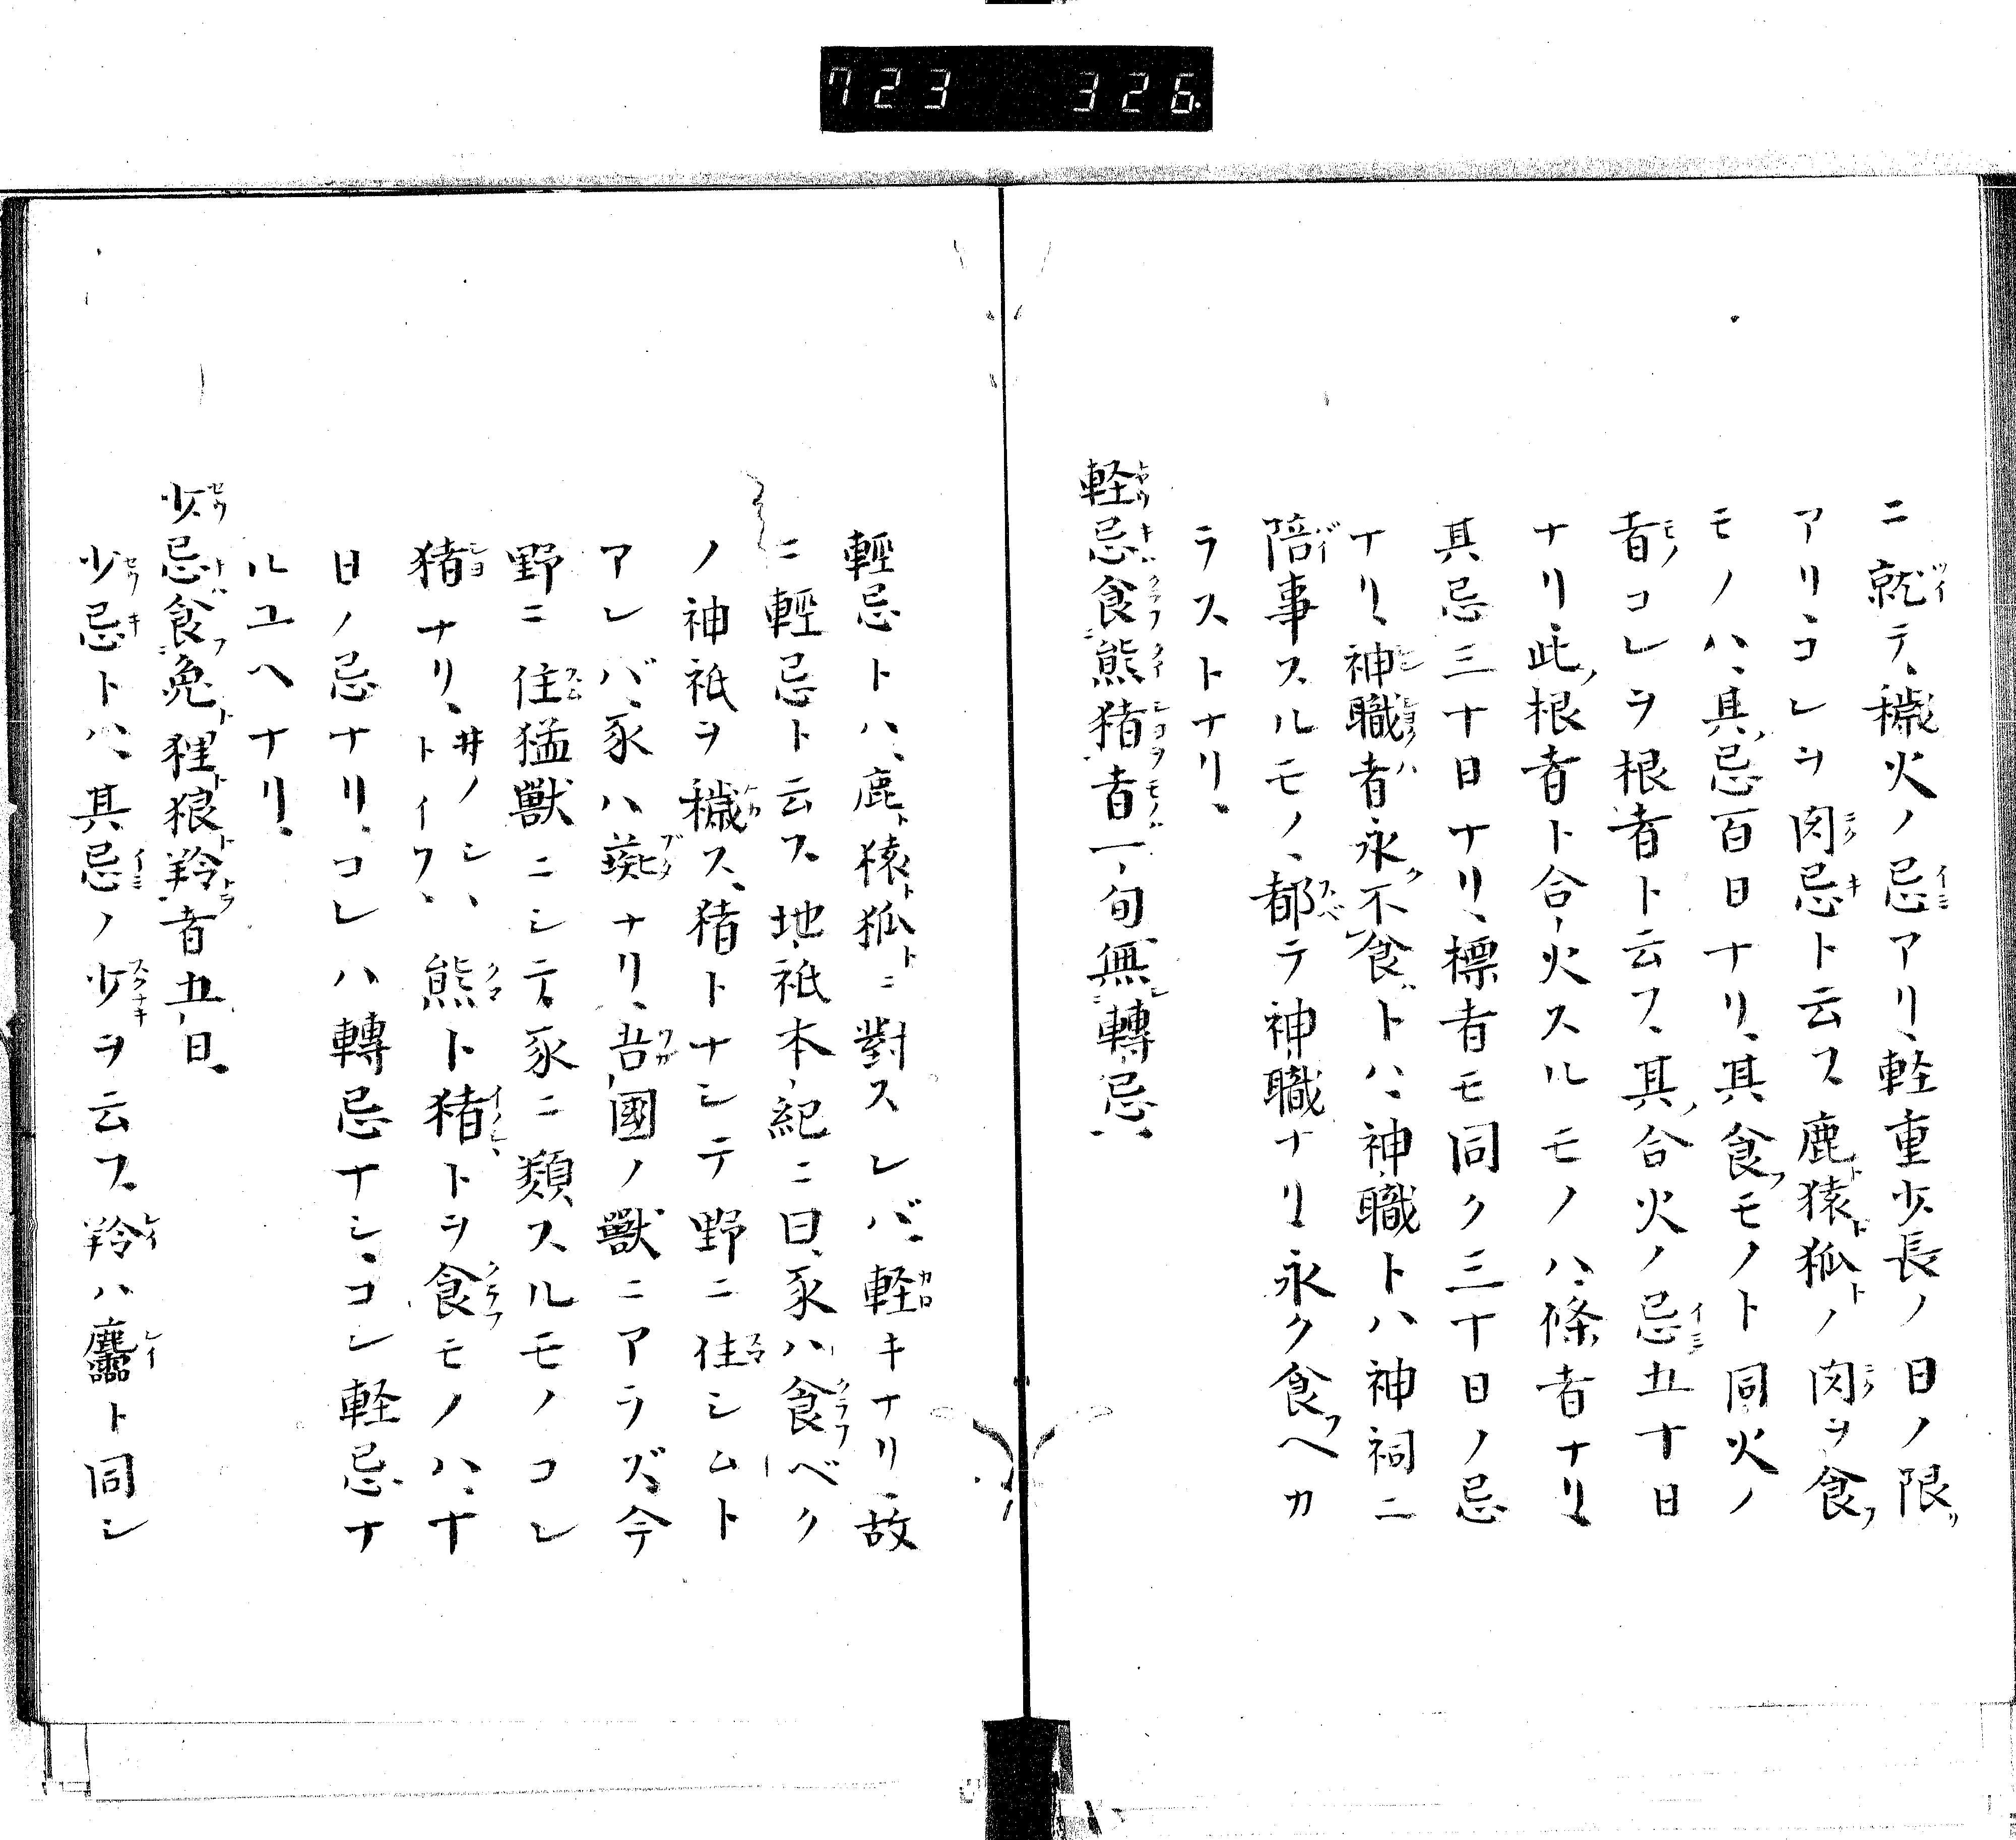 723 326
ニ就テ、穢火ノ忌アリ、軽重少長ノ日ノ限
アリ、コレヲ肉忌ト云フ鹿猿狐ノ肉ヲ食
モノハ、其忌百日ナリ、其食モノト同火ノ
者コレヲ根者ト云フ、其合火ノ忌五十日
ナリ、此根者ト合火スルモノハ、條者ナリ
其忌三十日ナリ、標者モ同ク三十日ノ忌
ナリ、神職者永不食トハ、神職トハ神祠ニ
陪事スルモノ、都テ神職ナリ、永ク食ヘカ
ラストナリ、
軽忌食熊猪者一旬無轉忌、
輕忌トハ、鹿猿狐ニ對スレバ、軽キナリ、故
ニ輕忌ト云フ、地祇本紀ニ曰、豕ハ食ベク
ノ神祇ヲ穢ス、猪トナシテ野ニ住シムト
アレバ、豕ハ㹠ナリ、吾國ノ獸ニアラズ、今
野ニ住猛獸ニシテ豕ニ類スルモノコレ
猪ナリ、井ノシヽトイフ、熊ト猪トヲ食モノハ、十
日ノ忌ナリ、コレハ轉忌ナシ、コレ軽忌ナ
ルユヘナリ、
少忌食兔狸狼羚者五日、
少忌トハ、其忌ノ少ヲ云フ、羚ハ麢ト同シ